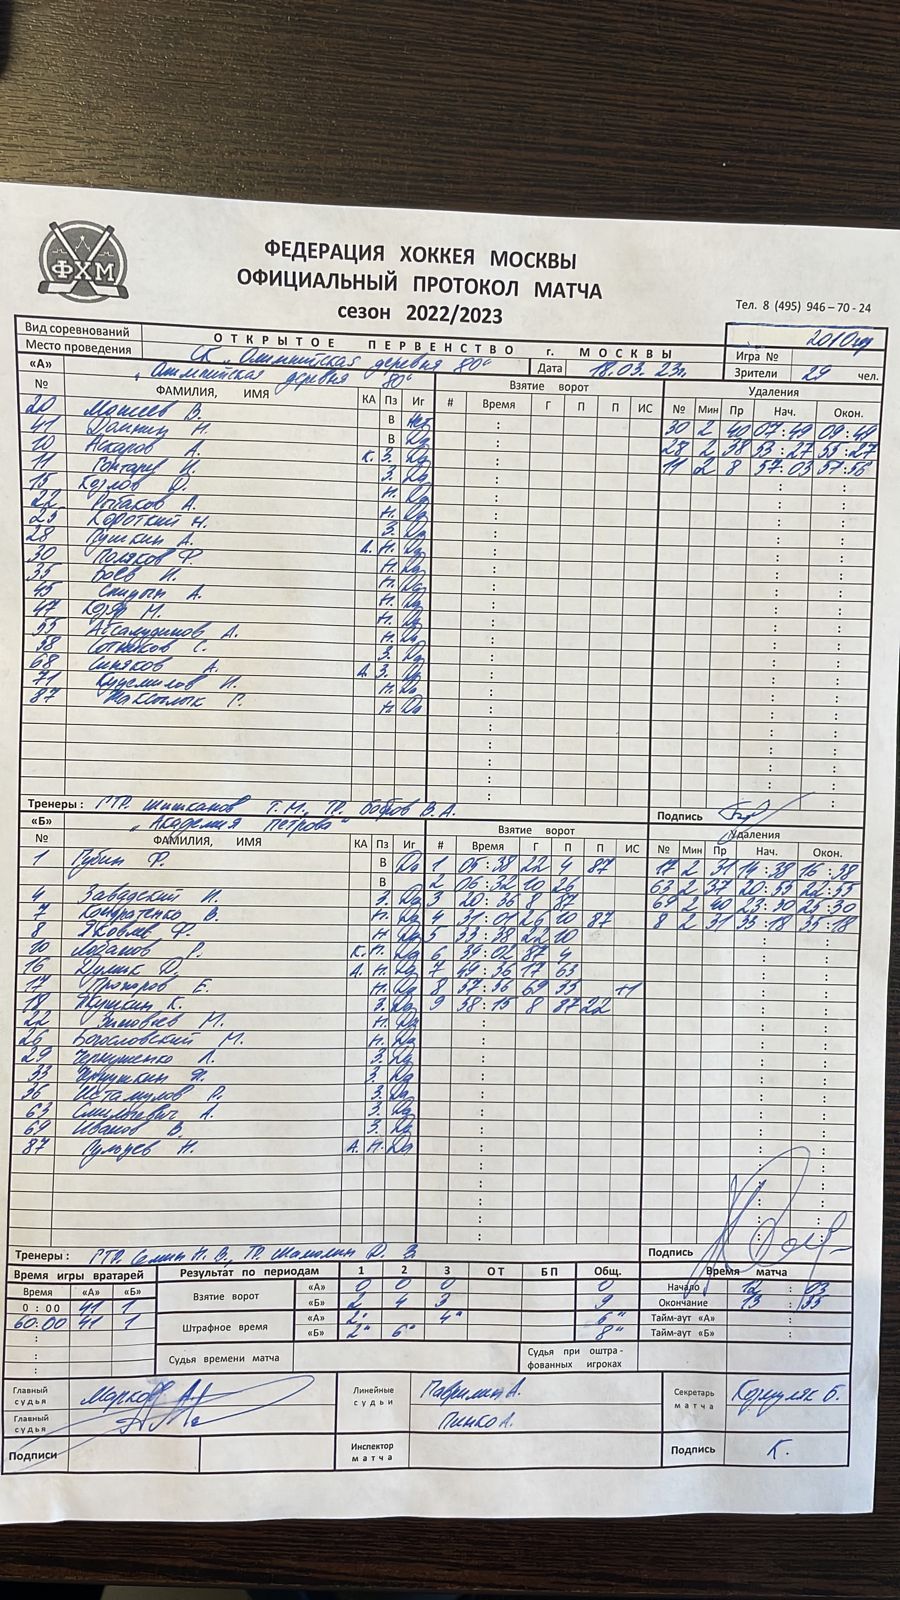 ФХМ
ФЕДЕРАЦИЯ ХОККЕЯ МОСКВЫ
ОФИЦИАЛЬНЫЙ ПРОТОКОЛ МАТЧА
сезон 2022/2023
Тел. 8 (495) 946–70-24
Вид соревнований ОТКРЫТОЕ ПЕРВЕНСТВО г. МОСКВЫ 2010
Место проведения СК „Олимпийская деревня 80“ Дата 18.03.23г. Игра №
Зрители 29 чел.
«А» „Олимпийская деревня 80“ Взятие ворот Удаления
№ ФАМИЛИЯ, ИМЯ КА Пз Иг # Время Г П П ИС № Мин Пр Нач. Окон.
20 Моисеев В. В Нет 30 2 40 07:49 09:49
41 Н. В Да 28 2 38 53:27 55:27
10 Аскаров А. К. З. Да 11 2 8 57:03
11 Гонтарев И. З. Да
15 Козлов Н. Да
22 Рыбаков А. Н. Да
25 Короткий Н. З. Да
28 Пушкин А. А. Н. Да
30 Поляков Ф. Н. Да
35 Боев И. Н. Да
45 Спицын А. Н. Да
47 М. Н. Да
55 Абсамудинов А. Н. Да
58 Сотников С. З. Да
68 Синяков А. А. З. Да
71 И. Н. Да
87 Г. Н. Да
Тренеры : ГТР. Шишканов Т.М., ТР. Бобров В.А. Подпись
«Б» „Академия Петрова“ Взятие ворот Удаления
№ ФАМИЛИЯ, ИМЯ КА Пз Иг # Время Г П П ИС № Мин Пр Нач. Окон.
1 Губин Ф. В Да 1 05:38 22 4 87 17 2 31 14:38 16:38
В 2 06:32 10 26 63 2 37 20:55 22:55
4 Завадский И. З. Да 3 20:36 8 87 69 2 40 23:30 25:30
7 Кондратенко В. Н. Да 4 31:01 26 10 87 8 2 31 33:18 35:18
8 Яковлев Ф. Н. Да 5 33:38 22 10
10 Лобанов Р. К. Н. Да 6 39:02 87 4
16 Д. А. Н. Да 7 49:36 17 63
17 Прохоров Е. Н. Да 8 57:56 69 33 +1
18 Якушкин К. З. Да 9 58:15 8 87 22
22 Зиновьев М. Н. Да
26 Богословский М. Н. Да
29 Чернушенко Л. З. Да
33 З. Да
36 Истамулов Р. З. Да
63 А. З. Да
69 Иванов В. З. Да
87 Гульцев Н. А. Н. Да
Тренеры : ГТР. Семин Н.В., ТР. Д. В. Подпись
Время игры вратарей Результат по периодам 1 2 3 ОТ БП Общ. Время матча
Время «А» «Б» Взятие ворот «А» 0 0 0 0 Начало 12 : 03
0 : 00 41 1 «Б» 2 4 3 9 Окончание 13 : 35
60:00 41 1 Штрафное время «А» 2" 4" 6" Тайм-аут «А» :
«Б» 2" 6" 8" Тайм-аут «Б» :
Судья времени матча Судья при оштрафованных игроках
Главный судья Марков А. Линейные судьи Гаврилин А. Секретарь матча Б.
Главный судья Пинко А.
Подписи Инспектор матча Подпись К.